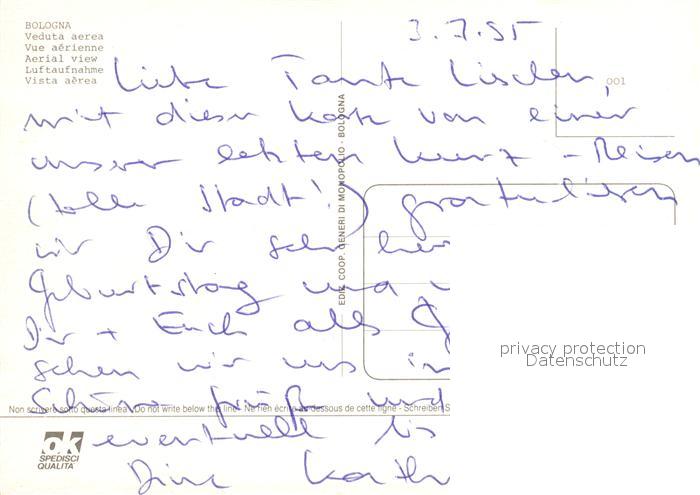 BOLOGNA
Veduta aerea
Vue aérienne
Aerial view
Luftaufnahme
Vista aérea
001
3.7.95
Liebe Tante Lischen,
mit dieser Karte von einer
unserer letzten Kurz-Reisen
(tolle Stadt!) gratulieren
wir Dir sehr her
Geburtstag und
Dir + Euch alles G
sehen wir uns in
Schöne Grüße und
eventuell bis
Deine Kath
EDIZ. COOP. GENERI DI MONOPOLIO - BOLOGNA
Non scrivere sotto questa linea - Do not write below this line - Ne rien écrire au-dessous de cette ligne - Schreiben S
ok
SPEDISCI
QUALITÀ
privacy protection
Datenschutz